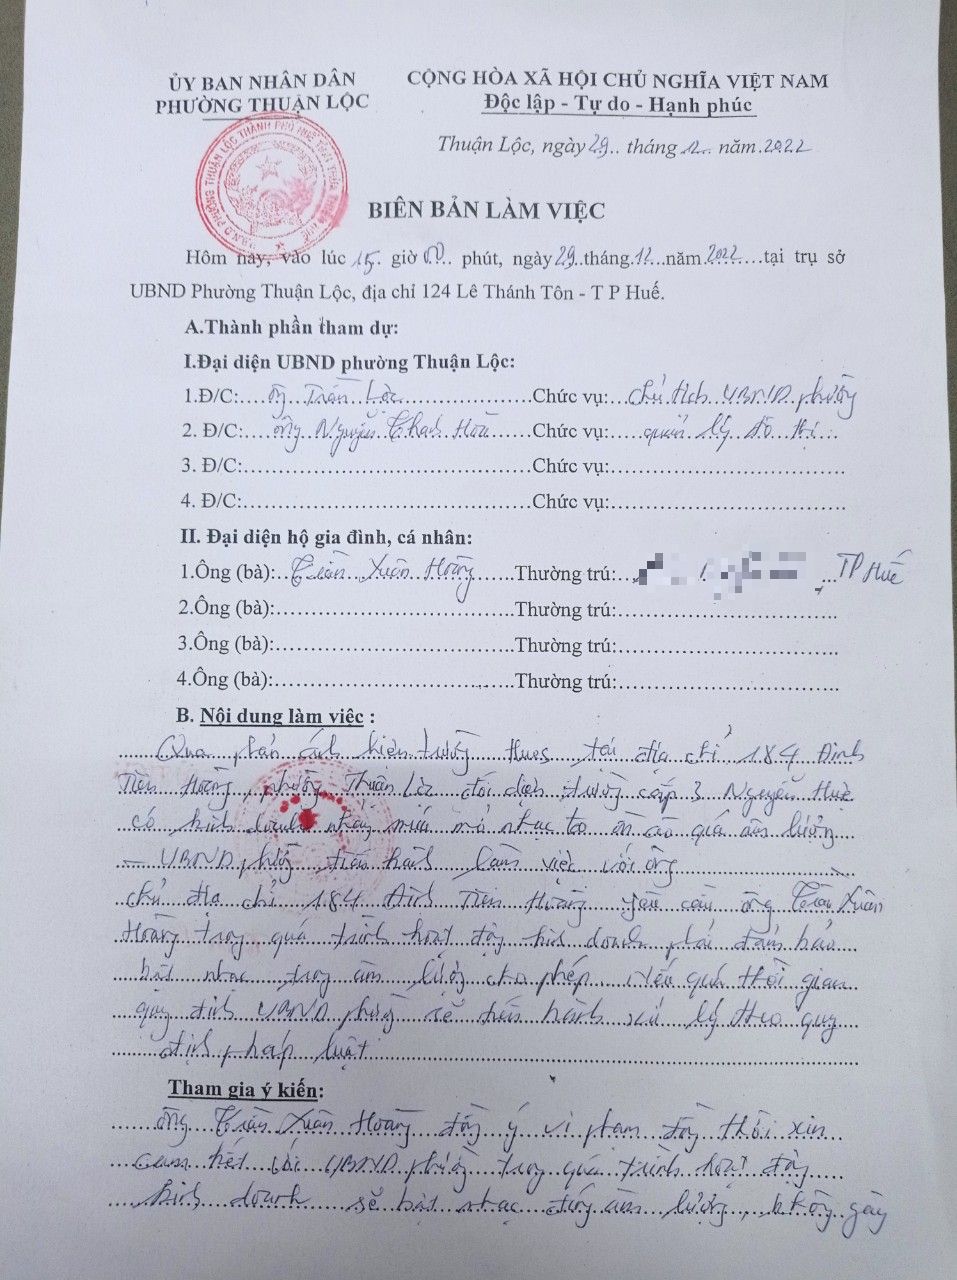 ỦY BAN NHÂN DÂN
PHƯỜNG THUẬN LỘC
CỘNG HÒA XÃ HỘI CHỦ NGHĨA VIỆT NAM
Độc lập - Tự do - Hạnh phúc
Thuận Lộc, ngày 29.. tháng 12.. năm.2022
U.B.N.D PHƯỜNG THUẬN LỘC THÀNH PHỐ HUẾ TỈNH THỪA THIÊN HUẾ
BIÊN BẢN LÀM VIỆC
Hôm nay, vào lúc 15. giờ 00.. phút, ngày 29..tháng.12...năm.2022......tại trụ sở
UBND Phường Thuận Lộc, địa chỉ 124 Lê Thánh Tôn - T P Huế.
A.Thành phần tham dự:
I.Đại diện UBND phường Thuận Lộc:
1.Đ/C:....ông Trần Lộc........Chức vụ:...chủ tịch UBND phường
2. Đ/C:....ông Nguyễn Thanh Hoà....Chức vụ:....quản lý đô thị...
3. Đ/C:........Chức vụ:........
4. Đ/C:........Chức vụ:........
II. Đại diện hộ gia đình, cá nhân:
1.Ông (bà):..Trần Xuân Hoàng......Thường trú:... TP Huế
2.Ông (bà):........Thường trú:........
3.Ông (bà):........Thường trú:........
4.Ông (bà):........Thường trú:........
B. Nội dung làm việc :
Qua phản ánh hiện trường tại địa chỉ 184 Đinh
Tiên Hoàng, phường Thuận Lộc đối diện trường cấp 3 Nguyễn Huệ
có kinh doanh nhảy múa mở nhạc to ồn ào quá âm lượng
- UBND phường tiến hành làm việc với ông
chủ địa chỉ 184 Đinh Tiên Hoàng yêu cầu ông Trần Xuân
Hoàng trong quá trình hoạt động kinh doanh phải đảm bảo
bật nhạc trong âm lượng cho phép. Nếu quá thời gian
quy định UBND phường sẽ tiến hành xử lý theo quy
định pháp luật
Tham gia ý kiến:
ông Trần Xuân Hoàng đồng ý vi phạm đồng thời xin
cam kết với UBND phường trong quá trình hoạt động
kinh doanh sẽ bật nhạc đúng âm lượng, không gây